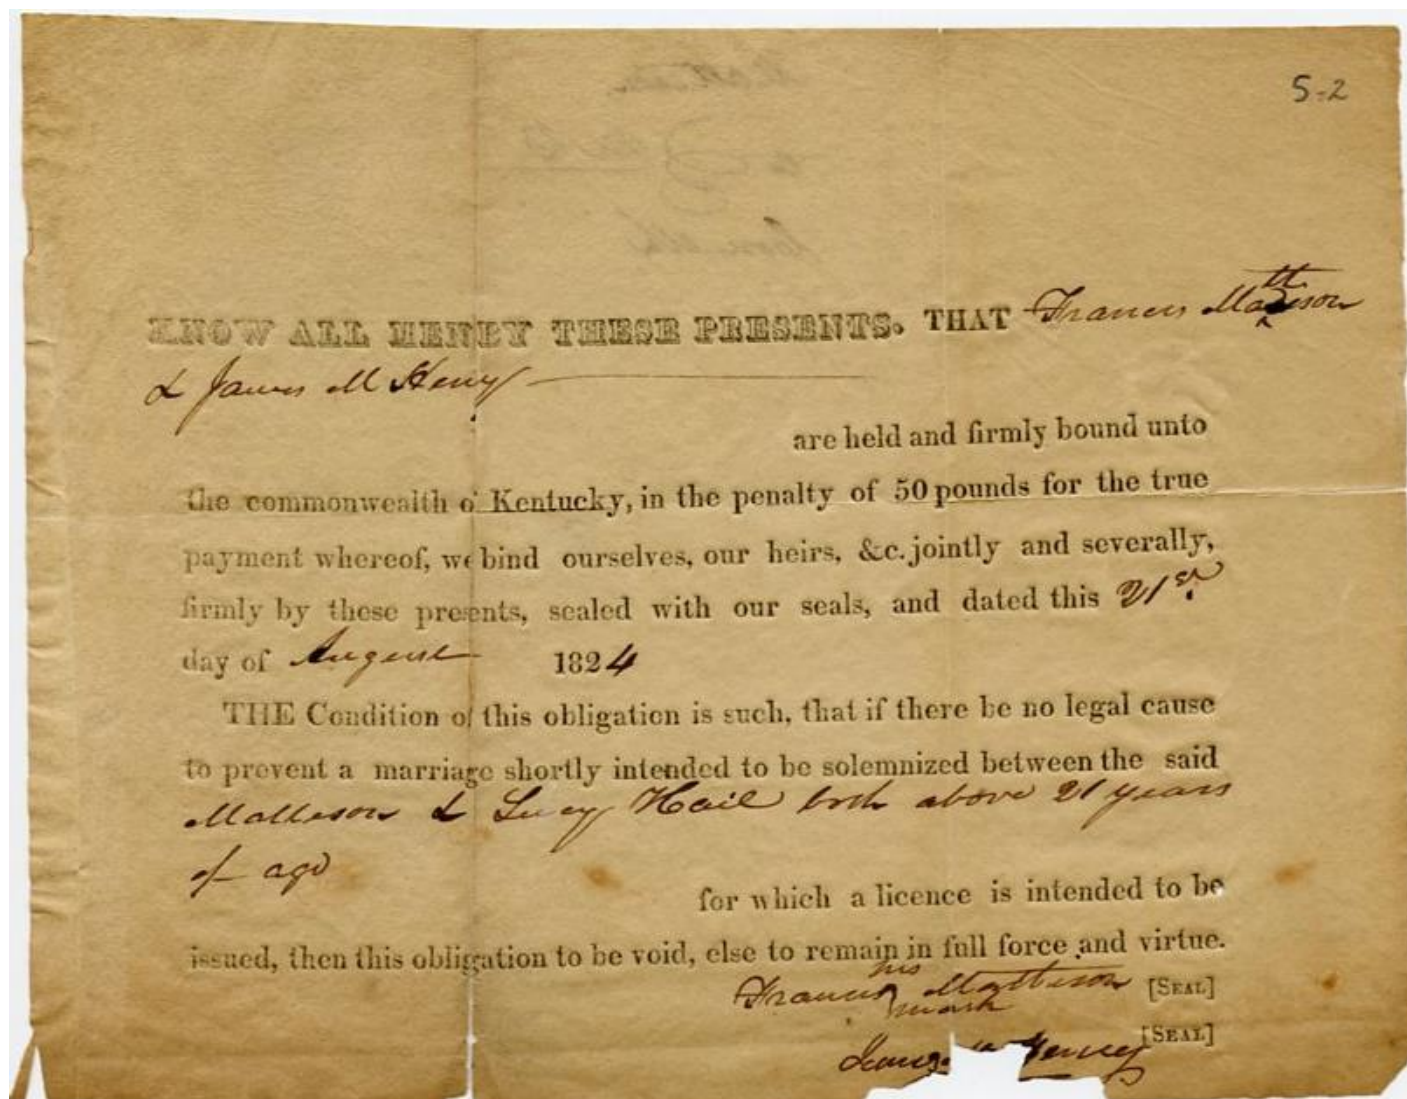 5-2
KNOW ALL MEN BY THESE PRESENTS. THAT Francis Matteson
& James M Henry
are held and firmly bound unto
the commonwealth of Kentucky, in the penalty of 50 pounds for the true
payment whereof, we bind ourselves, our heirs, &c. jointly and severally,
firmly by these presents, sealed with our seals, and dated this 21st
day of August 1824
THE Condition of this obligation is such, that if there be no legal cause
to prevent a marriage shortly intended to be solemnized between the said
Matteson & Lucy Hail both above 21 years
of age
for which a licence is intended to be
issued, then this obligation to be void, else to remain in full force and virtue.
his
Francis Matteson [SEAL]
mark
James Henry [SEAL]